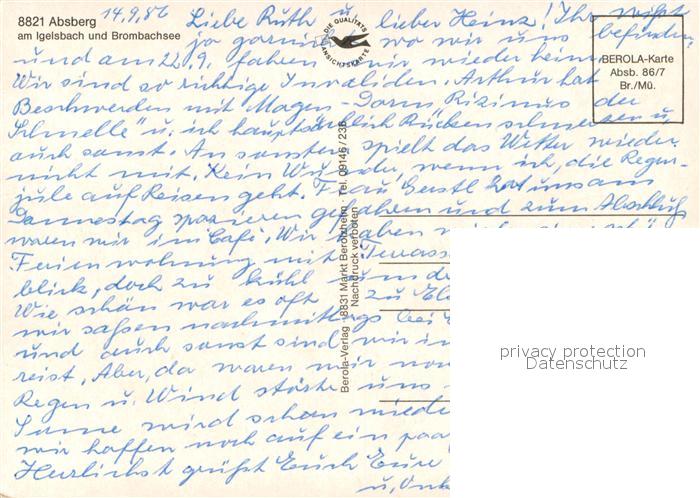 8821 Absberg
am Igelsbach und Brombachsee
DIE QUALITÄTS
ANSICHTSKARTE
BEROLA-Karte
Absb. 86/7
Br./Mü.
Berola-Verlag · 8831 Markt Berolzheim · Tel. 09146 / 236
Nachdruck verboten
14.9.86 Liebe Ruth u. lieber Heinz! Ihr wißt
ja garnicht wo wir uns befinden
und am 22.9. fahren wir wieder heim.
Wir sind so richtige Invaliden. Arthur hat
Beschwerden mit Magen-Darm Rizinus der
Schnelle" u. ich hauptsächlich Rückenschmerzen u.
auch sonst. Ansonsten spielt das Wetter wieder
nicht mit. Kein Wunder, wenn ich, die Regen-
jule auf Reisen geht. Frau Gerstl hat uns am
Donnerstag spazieren gefahren und zum Abschluß
waren wir im Café. Wir haben
Ferienwohnung mit Terrass
blick, doch zu kühl um
Wie schön war es oft zu
wir saßen nachmittags bei
und auch sonst sind wir
reist. Aber, da waren wir noch
Regen u. Wind störte uns
Sonne wird schon wieder
wir hoffen noch auf ein paar
Herzlichst grüßt Euch Eure
u. Onk
privacy protection
Datenschutz